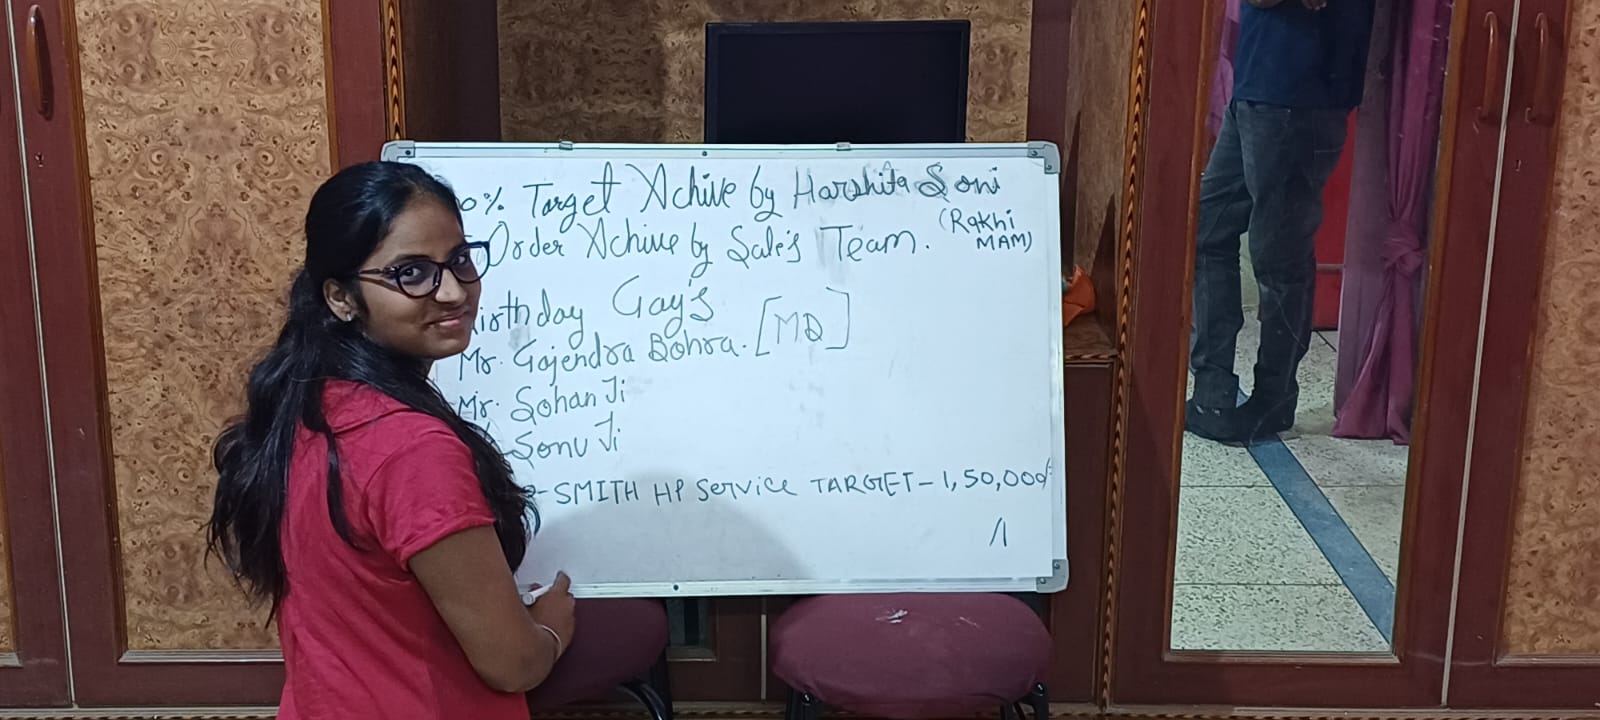 0% Target Achive by Harshita Soni
(Rakhi
MAM)
Order Achive by Sale's Team.
irthday Gay's
Mr. Gajendra Bohra. [MD]
Mr. Sohan Ji
Sonu Ji
-SMITH HP Service TARGET-1,50,000/-